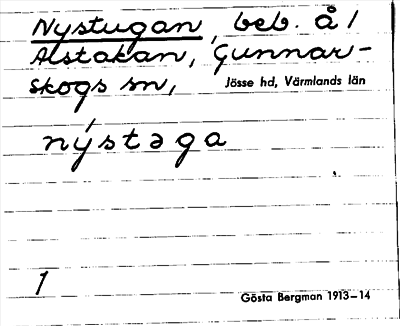 Nystugan, beb. å 1
Alstakan, Gunnar-
skogs sn,
Jösse hd, Värmlands län
nýstəga
1
Gösta Bergman 1913–14